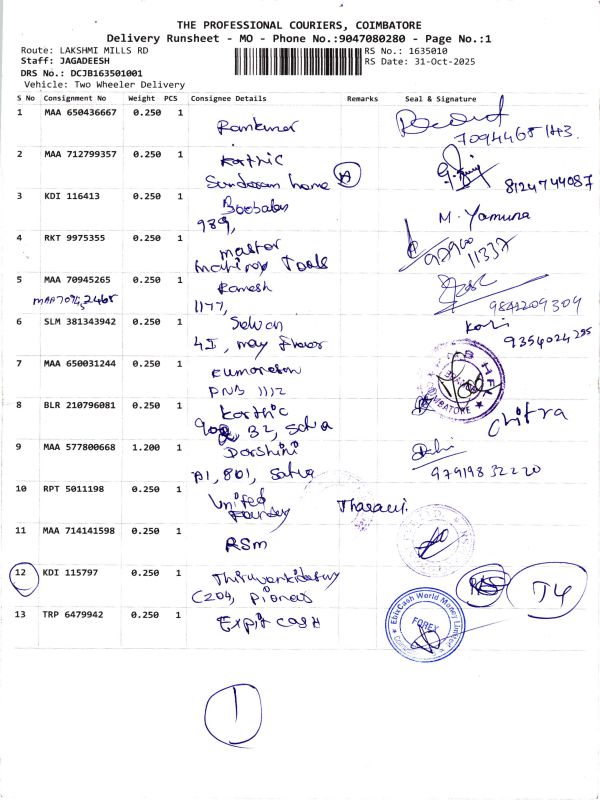 THE PROFESSIONAL COURIERS, COIMBATORE
Delivery Runsheet - MO - Phone No.:9047080280 - Page No.:1
Route: LAKSHMI MILLS RD
RS No.: 1635010
Staff: JAGADEESH
RS Date: 31-Oct-2025
DRS No.: DCJB163501001
Vehicle: Two Wheeler Delivery
S No Consignment No Weight PCS Consignee Details Remarks Seal & Signature
1 MAA 650436667 0.250 1 Ramkumar
7094468143
2 MAA 712799357 0.250 1 Karthic
Sundaram home A
8124744087
3 KDI 116413 0.250 1 Boobalan
989,
M. Yamuna
4 RKT 9975355 0.250 1 master
Tools
97900
11337
5 MAA 70945265 0.250 1 Ramesh
1177,
9842209309
6 SLM 381343942 0.250 1 Selvan
4I, may flower
9354024255
7 MAA 650031244 0.250 1 Kumaresan
PNB 1112
COIMBATORE
8 BLR 210796081 0.250 1 Karthic
B2,
Chitra
9 MAA 577800668 1.200 1 Darshini
A1, 801,
97919832220
10 RPT 5011198 0.250 1 United
Foundry
Tharani.
11 MAA 714141598 0.250 1 RSM
12 KDI 115797 0.250 1
C204, Pioneer
T4
13 TRP 6479942 0.250 1 cash
EbixCash World Money Limited
FOREX
1